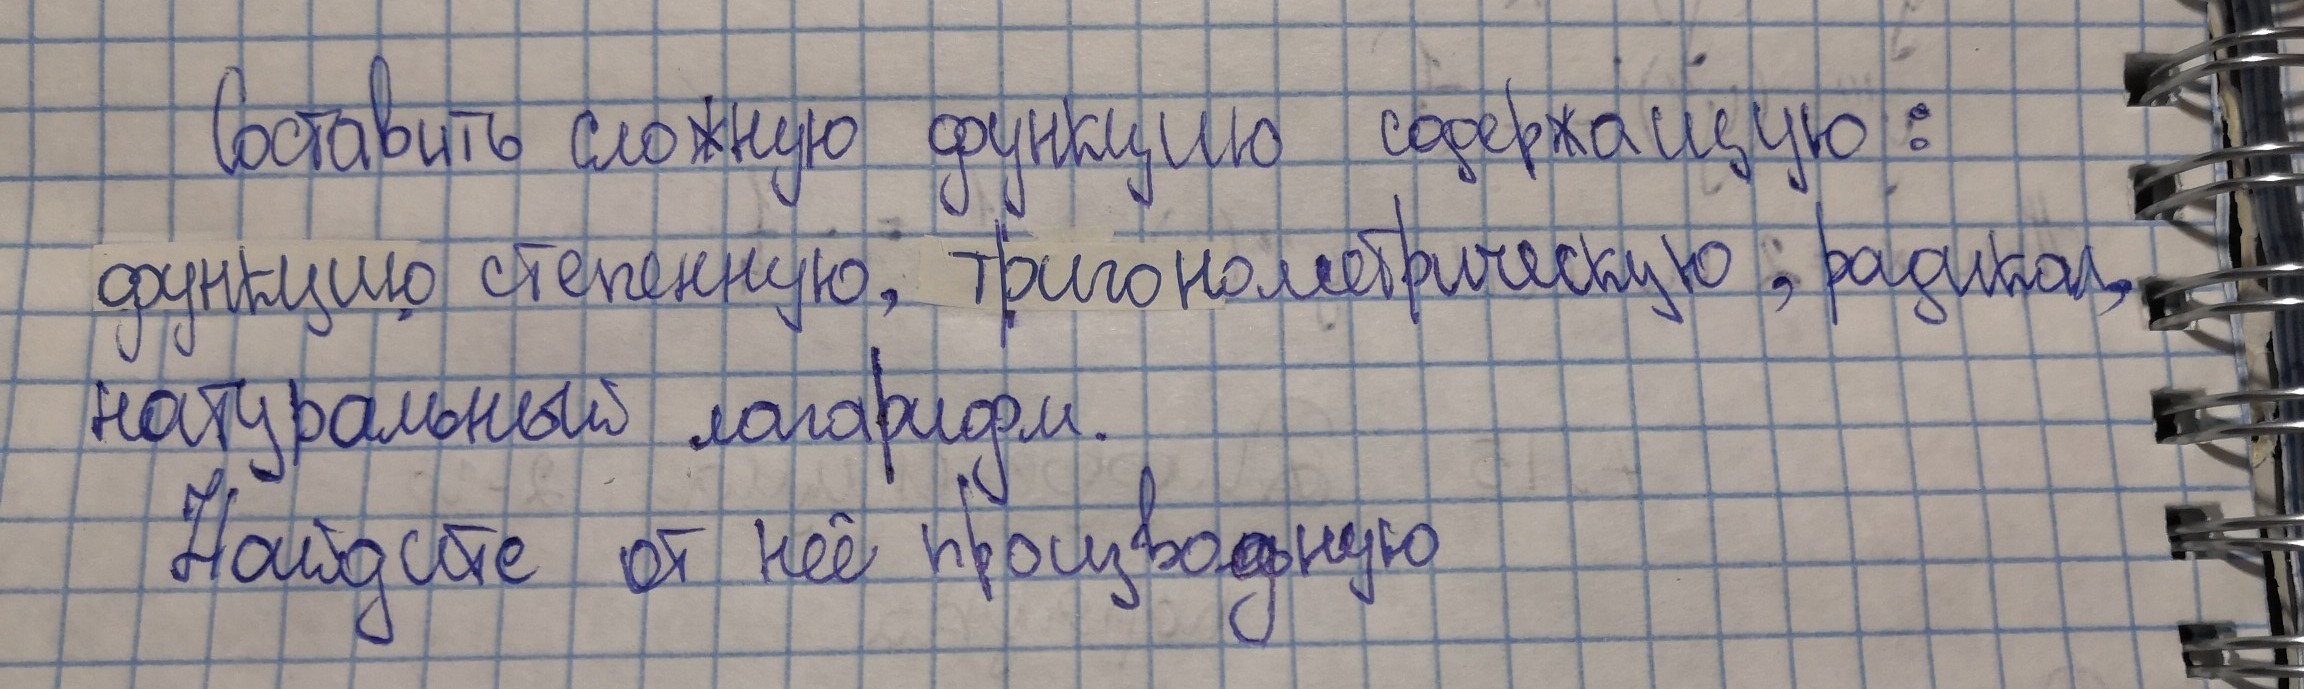 Составить сложную функцию содержащую:
функцию степенную, тригонометрическую, радикал,
натуральный логарифм.
Найдите от неё производную